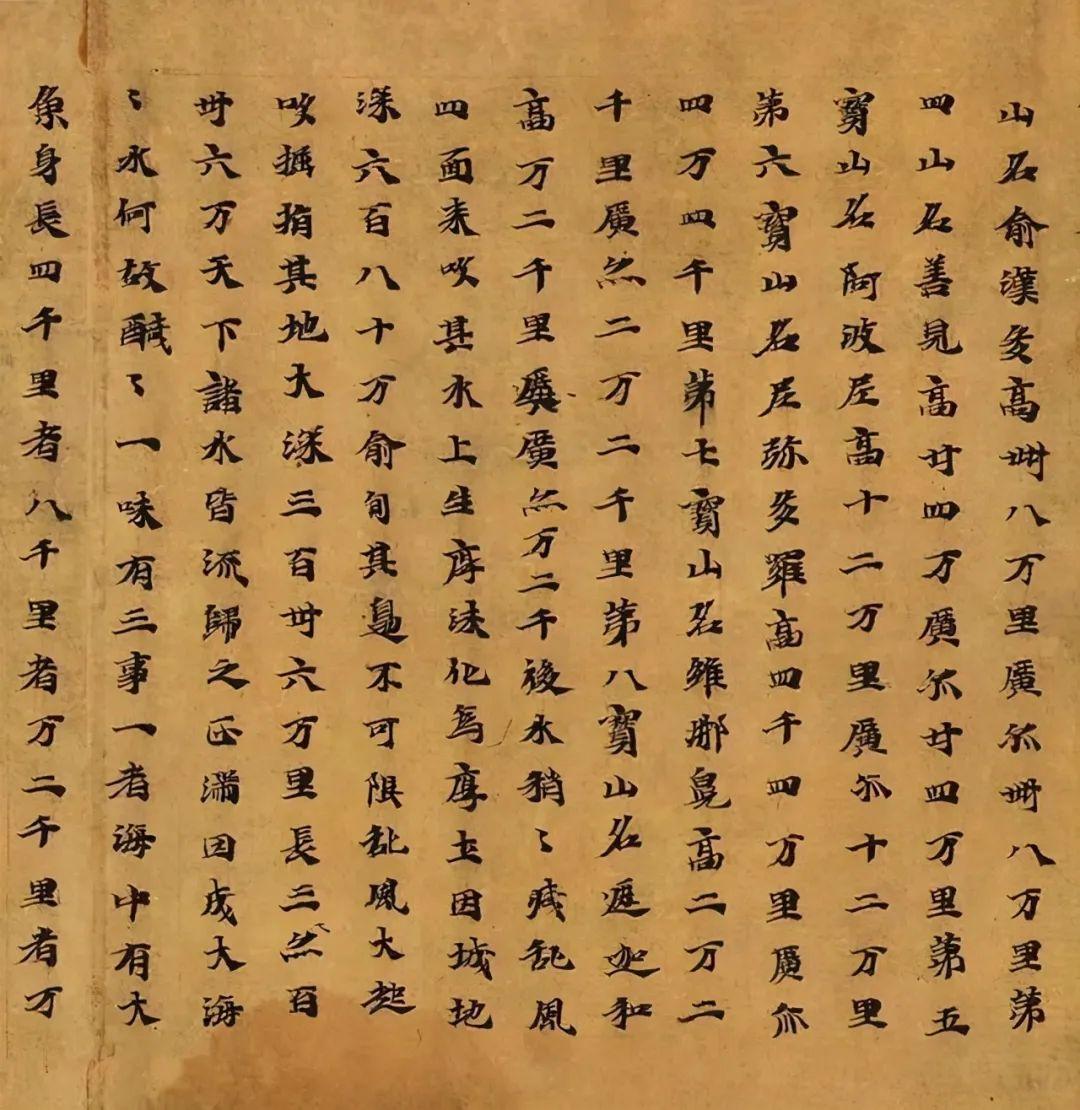 山名俞漢多高卌八万里廣亦卌八万里第
四山名善見高廿四万廣亦廿四万里第五
寶山名阿波尼高十二万里廣亦十二万里
第六寶山名尼弥多羅高四千四万里廣亦
四万四千里第七寶山名維那兜高二万二
千里廣亦二万二千里第八寶山名遮迦和
高万二千里廣廣亦万二千後水稍〻減乱風
四面来吹其水上生厚沫化為厚土因城地
深六百八十万俞旬其邊不可限乱風大起
吹掘損其地大深三百卅六万里長三然百
卅六万天下諸水皆流歸之正滿因成大海
〻水何故醎〻一味有三事一者海中有大
魚身長四千里者八千里者万二千里者万